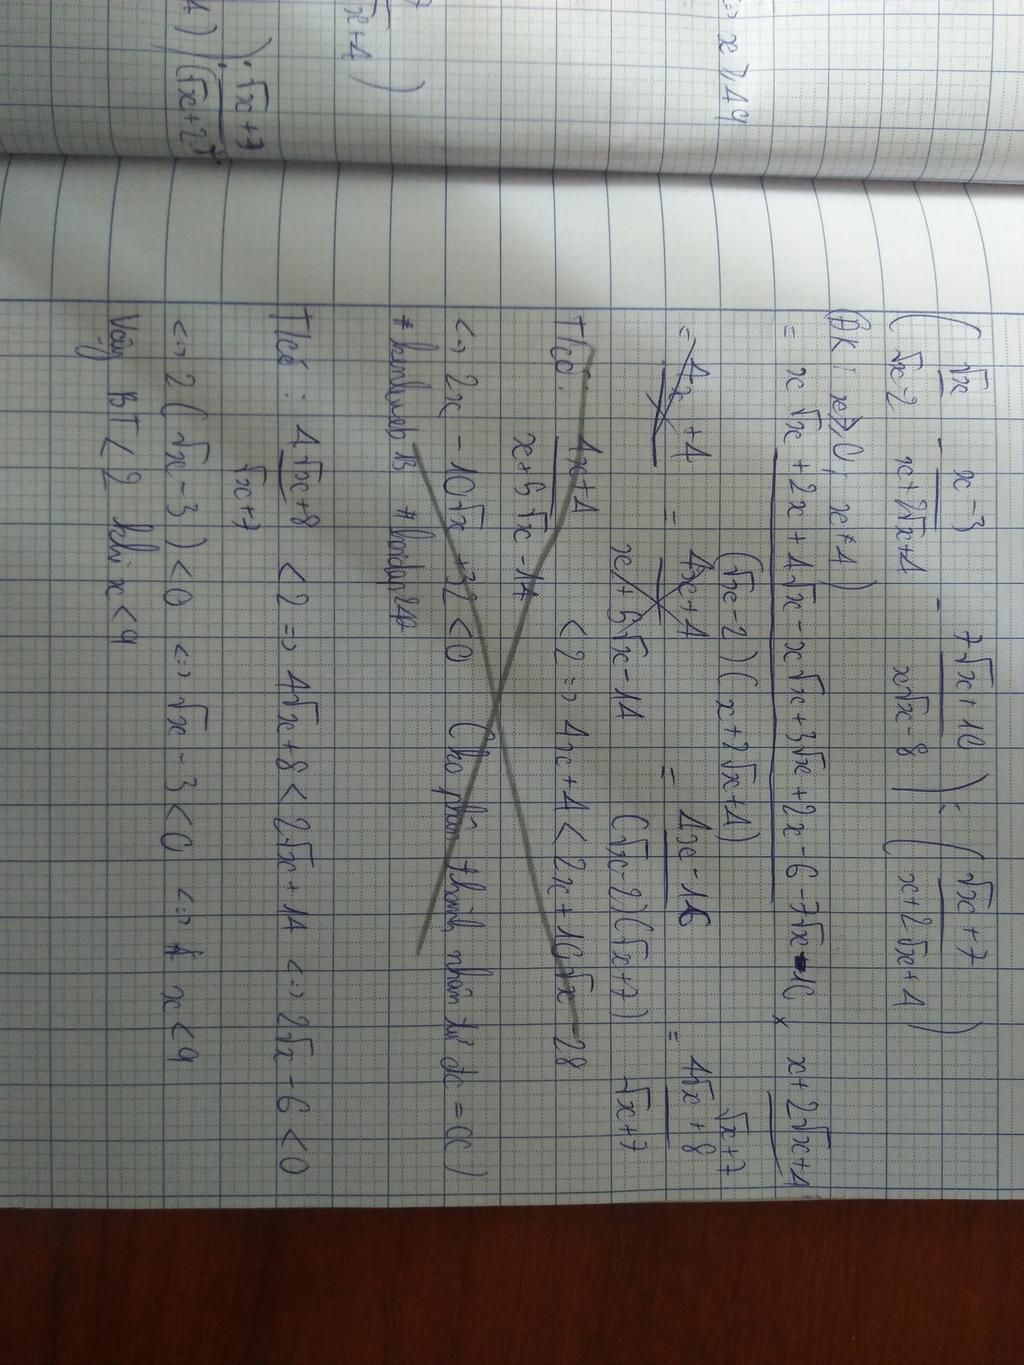 x ⩾ 49
√x+4 )
) : √x+7
4) (√x+2)²
( √x/√x-2 - x-3/x+2√x+4 - 7√x+10/x√x-8 ) : ( √x+7/x+2√x+4 )
(ĐK : x⩾0, x≠4)
= x√x+2x+4√x-x√x+3√x+2x-6-7√x-10/(√x-2)(x+2√x+4) × x+2√x+4/√x+7
= 4x+4 = 4x+4/x+5√x-14 = 4x-16/(√x-2)(√x+7) = 4√x+8/√x+7
T/có : 4x+4/x+5√x-14 < 2 => 4x+4 < 2x+10√x-28
<=> 2x - 10√x +32 < 0 (ko phân thành nhân tử đc =(( )
T/có : 4√x+8/√x+7 < 2 => 4√x+8 < 2√x+14 <=> 2√x - 6 < 0
<=> 2(√x-3)<0 <=> √x-3<0 <=> x<9
Vậy BT < 2 khi x<9